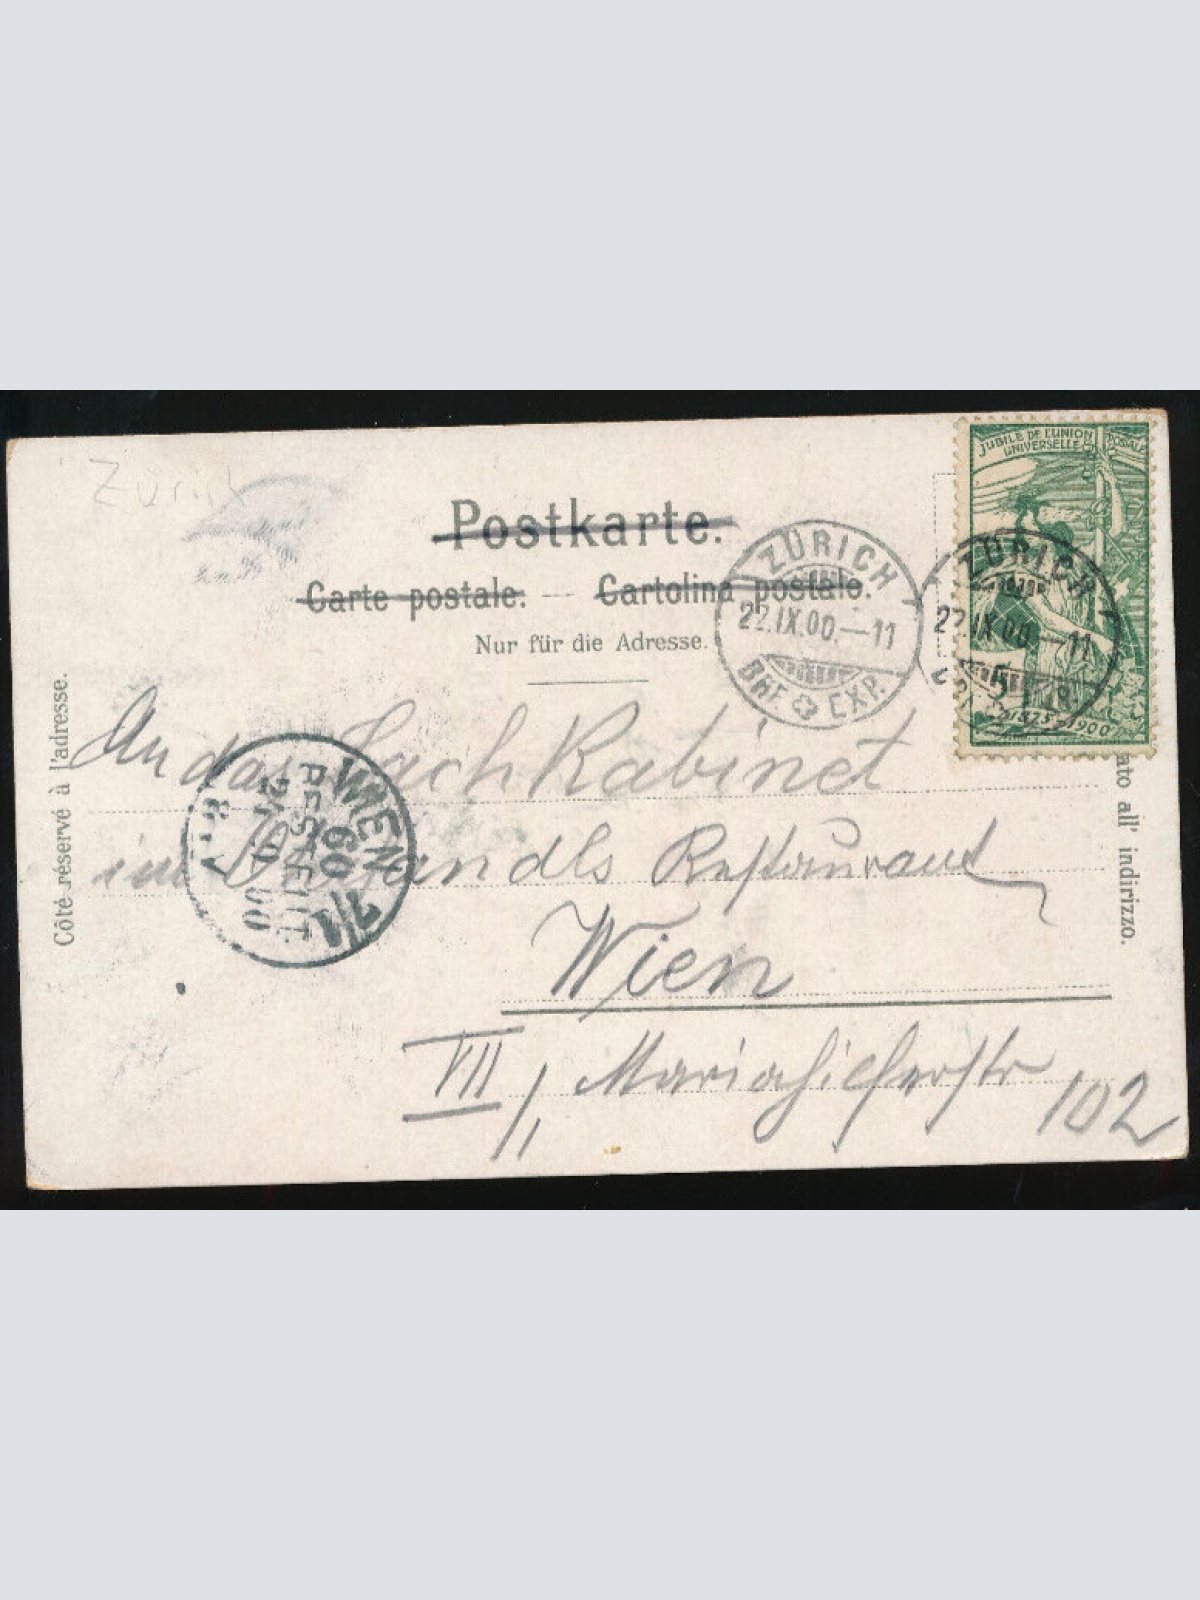 Zürich
JUBILÉ DE L'UNION POSTALE
UNIVERSELLE
Postkarte.
Carte postale. — Cartolina postale.
Nur für die Adresse.
ZÜRICH
22.IX.00.—11
BRF. EXP.
ZÜRICH
22.IX.00.—11
5
1875 1900
Côté réservé à l'adresse.
ato all' indirizzo.
An das Lachkabinet
im Restaurant
WIEN 7/1
60
BESTELLT
00
Wien
VII/1 Mariahilferstr 102